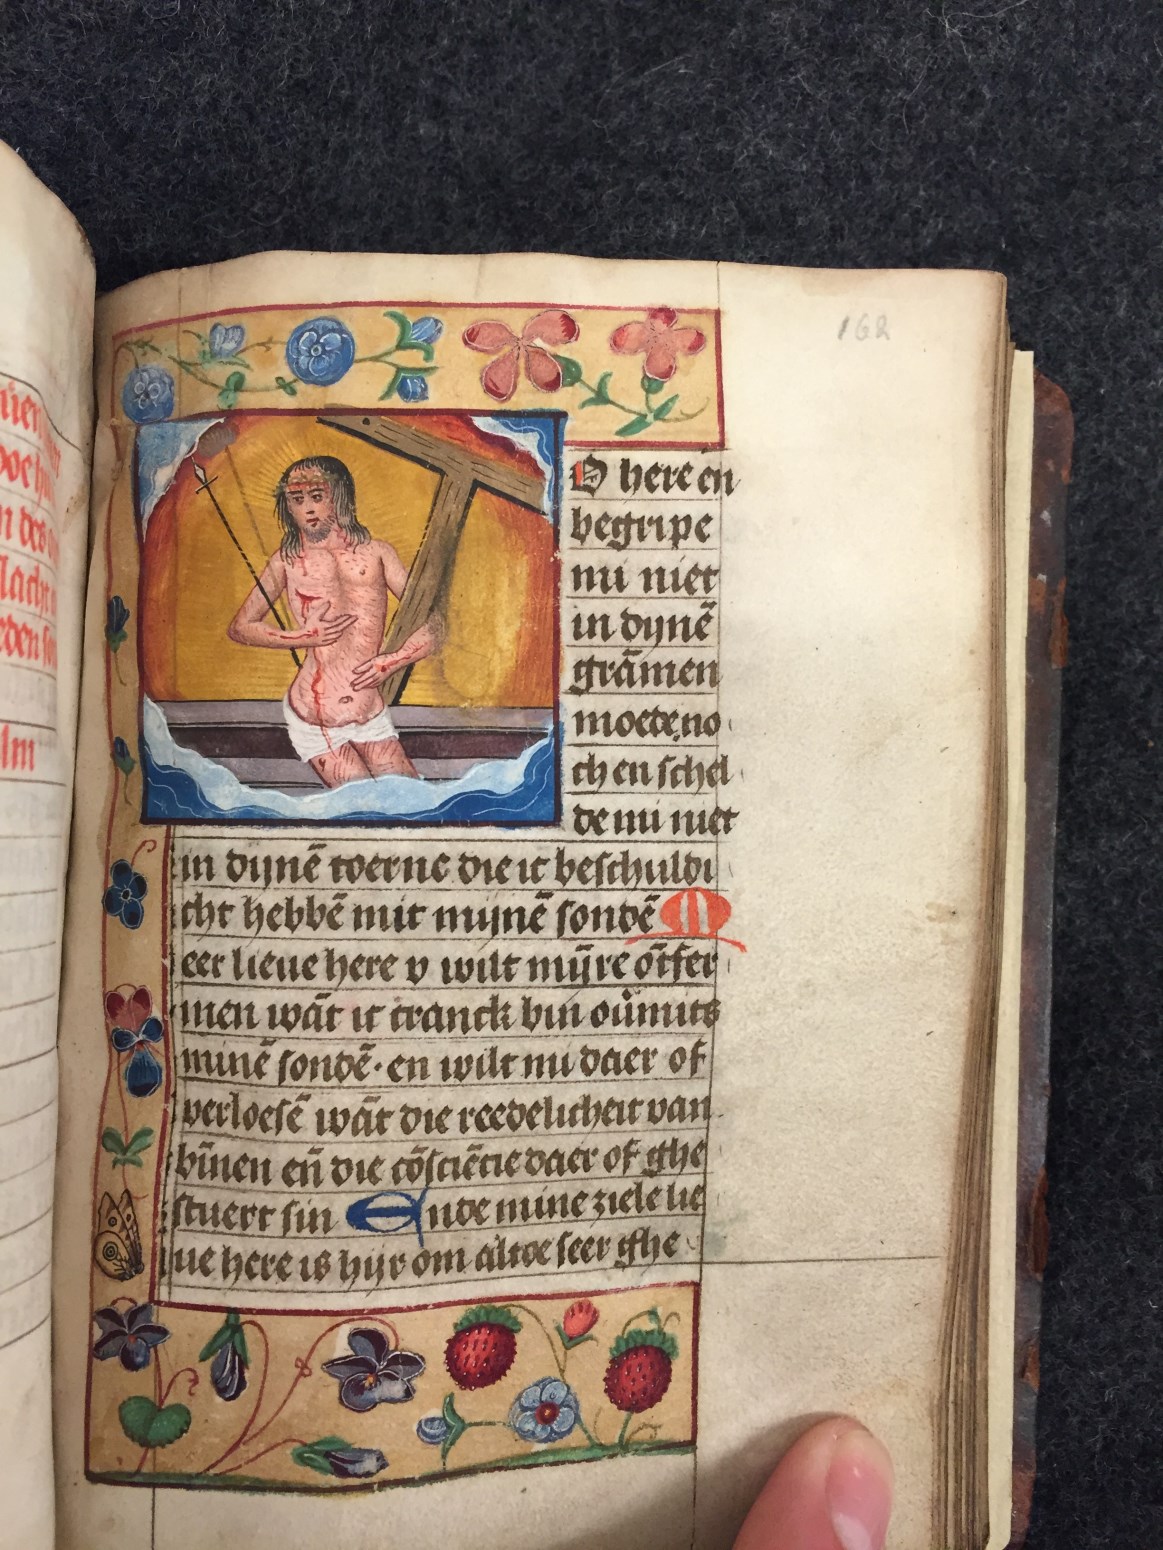 162
O here en
begripe
mi niet
in dynē
grāmen
moede no
ch en schel
de mi niet
in dynē toerne die ic beschuldi
cht hebbē mit mynē sondē M
eer lieue here v wilt mȳre ōtfer
men wāt ic cranck bin ouͦmits
minē sondē · en wilt mi daer of
verloesē wāt die reedelicheit van
bīnen eñ die cōsciēcie daer of ghe
stuert sin Ende mine ziele lie
ue here is hyr om altoe seer ghe